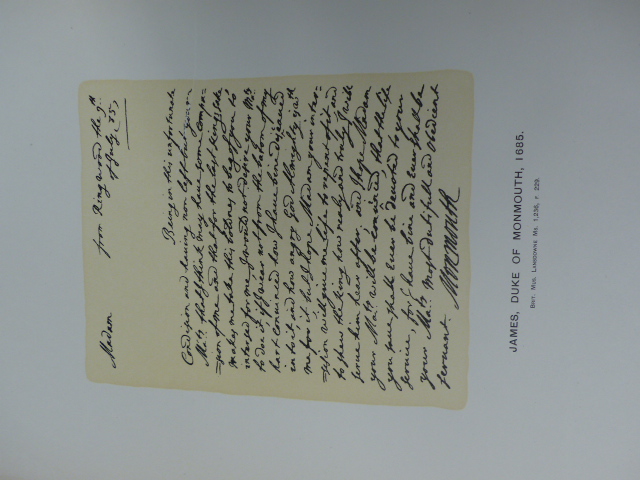 from Ringwood the 9th
of July (85)
Madam
Being in this unfortunate
Condition and having non left but your
Mа:ty that I think may have some compas=
=sion of me and that for the last Kings sake
makes me take this boldnes to beg of you to
interсed for me, I would not desire your Ma:ty
to doe it if I wear not from the botom of my
hart convinced how I have bine disceaved
into it, and how angry God Almighty is with
me for it but I hope Madam your inter=
=sesion will give me life to repent of it and
to shew the King how realy and truly I will
serve him hear after, and I hope Madam
your Ma:ty will be convinced that the life
you save shall Ever be devoted to your
servise, for I have bine and ever shall be
your Ma:tys Most dutifull and obedient
servant
Monmouth
JAMES, DUKE OF MONMOUTH, 1685.
BRIT. MUS. LANSDOWNE MS. 1,236, F. 229.